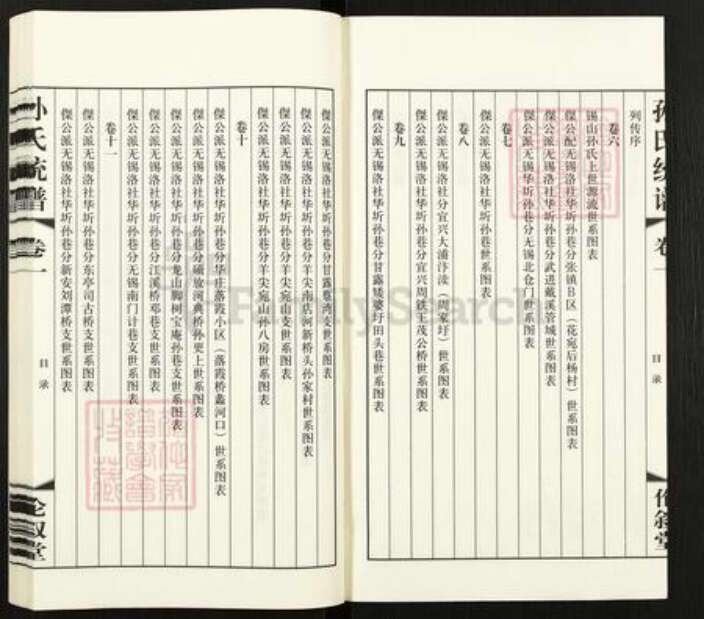 列传序
卷六
锡山孙氏上世源流世系图表
傑公配无锡洛社华圻孙巷分张镇B区（花宛后杨村）世系图表
傑公派无锡洛社华圻孙巷分武进戴溪管城世系图表
傑公派无锡洛社华圻孙巷分无锡北仓门世系图表
卷七
傑公派无锡洛社华圻孙巷世系图表
卷八
傑公派无锡洛社分宜兴大浦汴渎（周家圩）世系图表
傑公派无锡洛社华圻孙巷分宜兴周铁王茂公桥世系图表
卷九
傑公派无锡洛社华圻孙巷分甘露矮婆圩田头巷世系图表
傑公派无锡洛社华圻孙巷分甘露蔡湾支世系图表
傑公派无锡洛社华圻孙巷分羊尖南店河新桥头孙家村世系图表
傑公派无锡洛社华圻孙巷分羊尖宛山支世系图表
傑公派无锡洛社华圻孙巷分羊尖宛山孙八房世系图表
卷十
傑公派无锡洛社华圻孙巷分华庄落霞小区（落霞桥蠡河口）世系图表
傑公派无锡洛社华圻孙巷分硕放河典桥孙更上世系图表
傑公派无锡洛社华圻孙巷分龙山脚树宝庵孙巷支世系图表
傑公派无锡洛社华圻孙巷分江溪桥邓巷支世系图表
傑公派无锡洛社华圻孙巷分无锡南门计巷支世系图表
卷十一
傑公派无锡洛社华圻孙巷分东亭司古桥支世系图表
傑公派无锡洛社华圻孙巷分新安刘潭桥支世系图表
孙氏统谱
卷一
目录
伦叙堂
FamilySearch